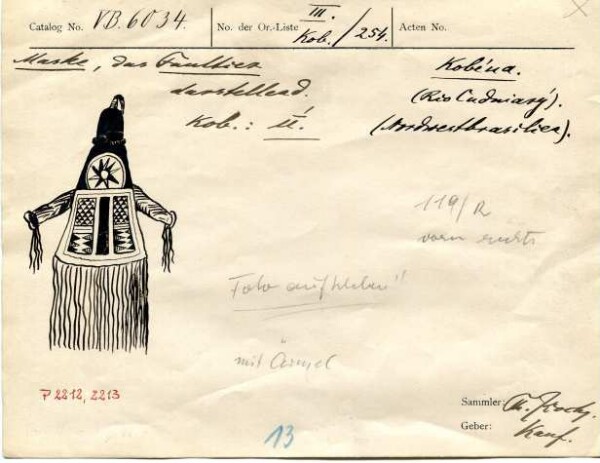 Catalog No. VB.6034. No. der Or.-Liste III. Kob./254. Acten No.
Maske, das Faultier
darstellend.
Kob.:
Kobéua.
(Rio Cuduiarý).
(Nordwestbrasilien).
119/R
vorn rechts
Foto aufkleben"
mit Ärmel
P 2212, 2213
13
Sammler: Th. Koch.
Geber: Kauf.